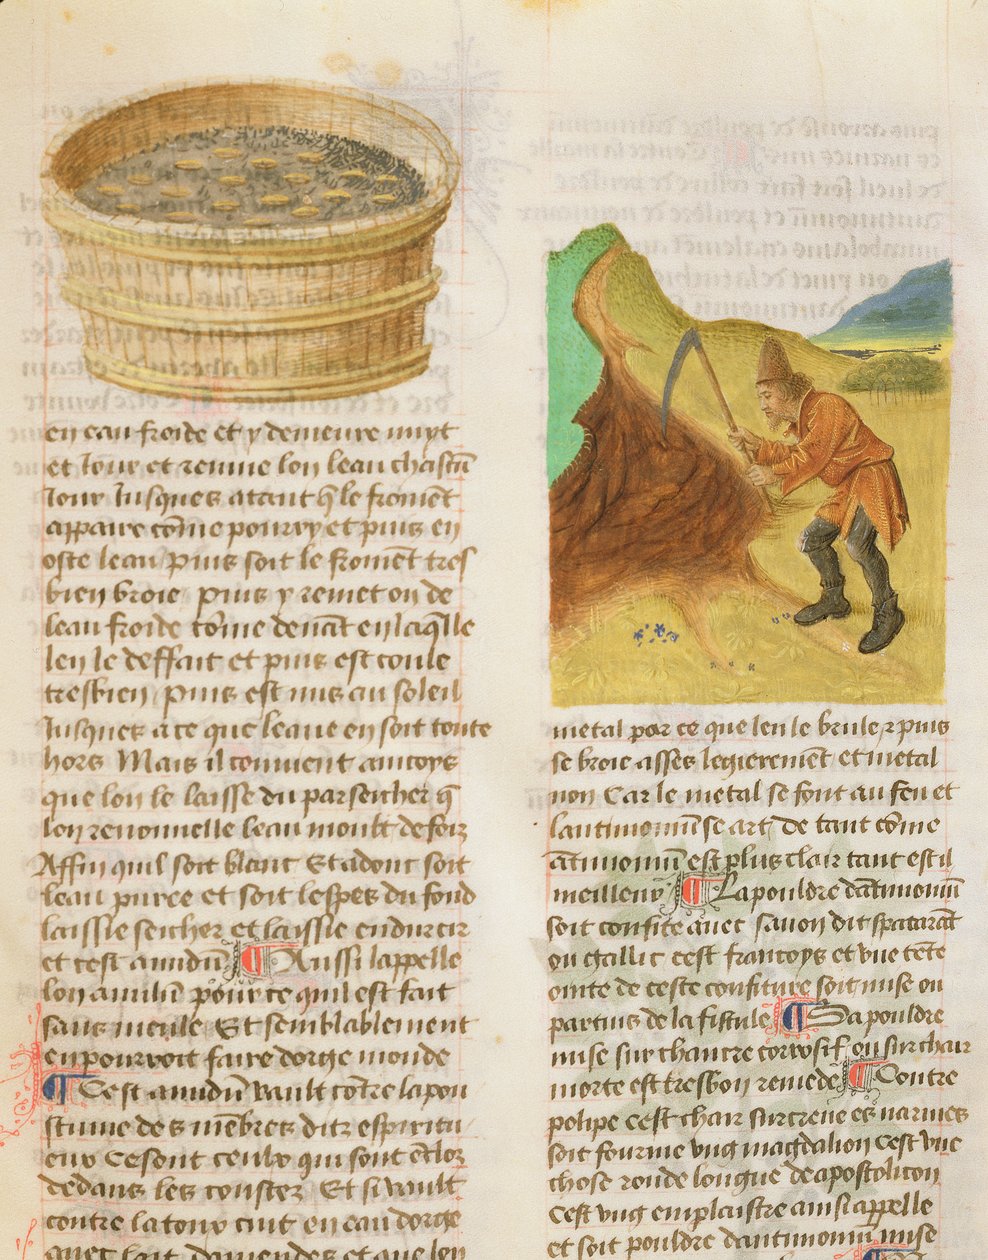 en eau froide et y demeure nuyt
et Jour et remue lon leau chascū
Jour Jusques atant q̄ le fromēt
appaire cōme pourry et puis en
oste leau Puis soit le fromēt tres
bien broie puis y remet on de
leau froide cōme deuāt en laq̄lle
len le deffait et puis est coule
tresbien Puis est mis au soleil
Jusques a ce que leaue en soit toute
hors Mais il conuient aincoys
que lon le laisse du par seicher q̄
lon renouuelle leau moult de foiz
Affin quil soit blanc Et adont soit
leau puree et soit lespes du fond
laissie seicher et laissie endurcir
et cest amidū ¶ Aussi lappelle
lon amiliū pour ce quil est fait
sans meule Et semblablement
en pourroit faire dorge monde
¶ Cest amidū vault cōtre lapou
stume des mēbres ditz espiritu
eux Ce sont ceulx qui sont ēcloz
dedans les coustez Et si vault
contre la toux cuit en eau dorge
auec lait damendes et que len
metal por ce que len le brule et puis
se broie asses legierement et metal
non Car le metal se font au feu et
lantimonium se art De tant cōme
ātimonium est plus clair tant est il
meilleur ¶ La pouldre dātimonium
soit confite auec sauon dit spatarāt
ou gallic cest francoys et vne tēte
ointe de ceste confiture soit mise ou
partuis de la fistule ¶ Sa pouldre
mise sur chancre corrosif ou sur chair
morte est tresbon remede ¶ Contre
polipe cest chair surcreue es narines
soit fourme vng magdalion cest vne
chose ronde longue de apostolicon
Cest vng emplaistre ainsi appelle
et soit pouldre dantimonium mise